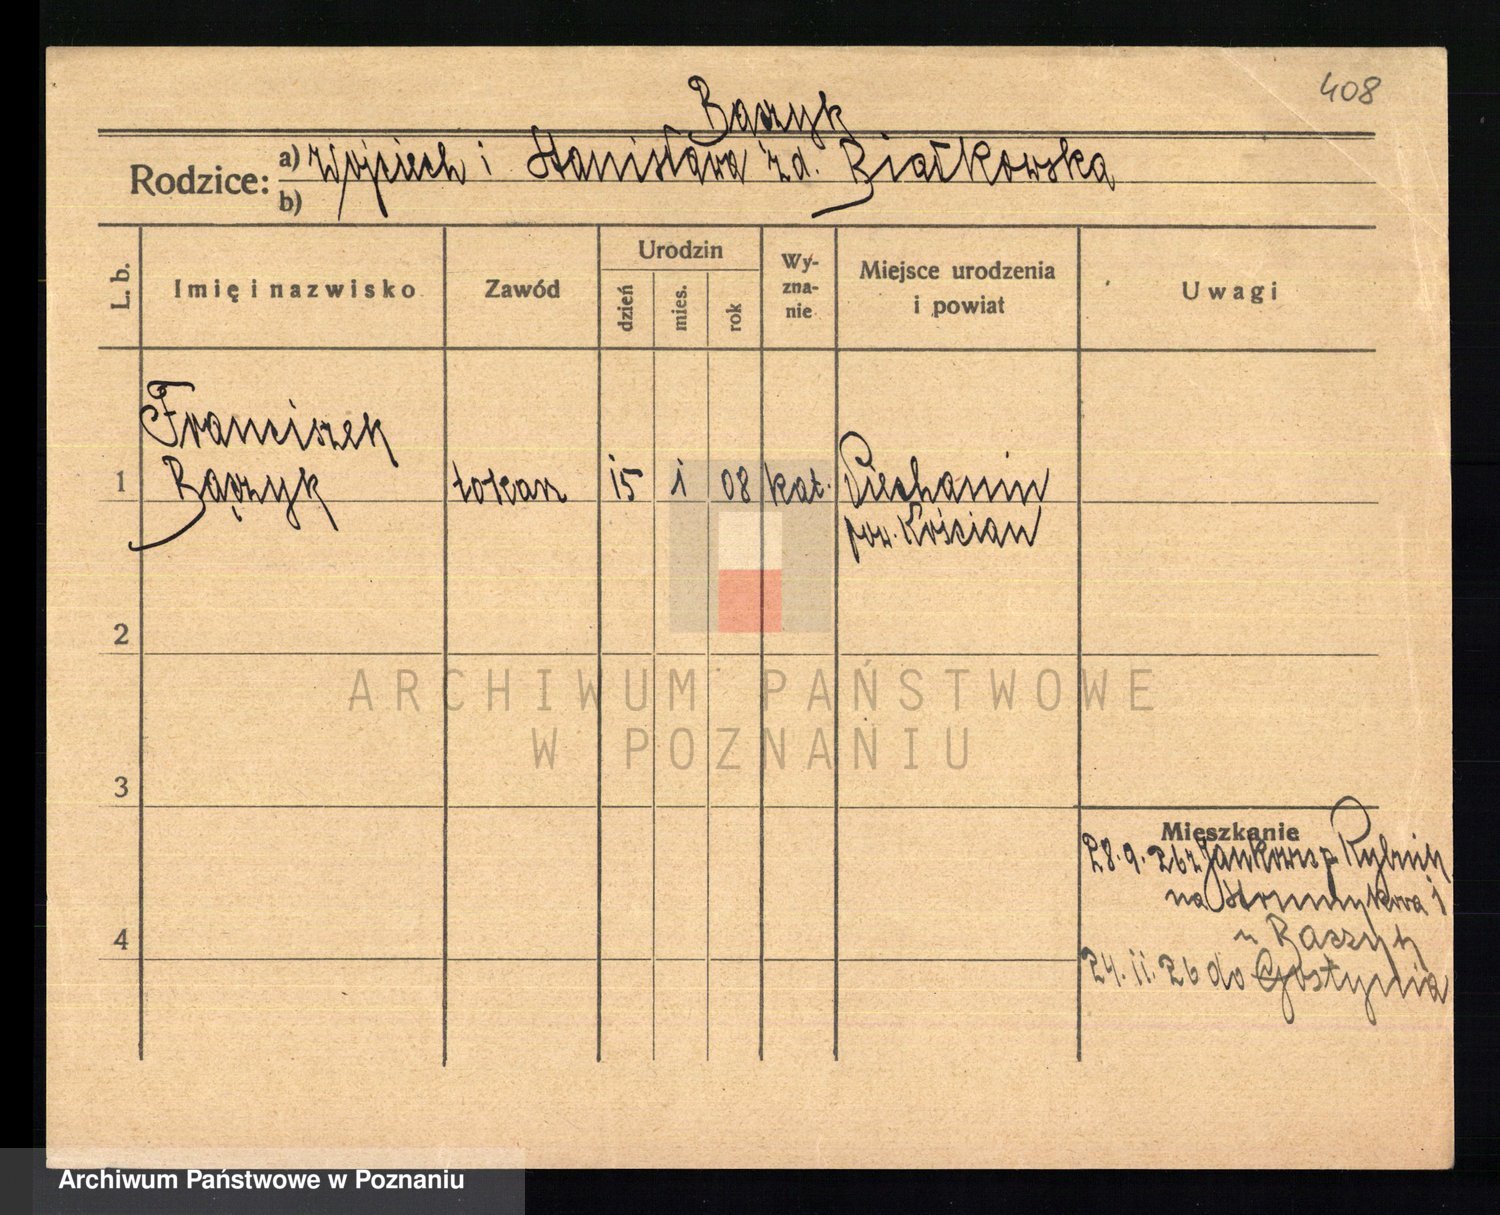 408
Bączyk
Rodzice: a) Wojciech i Stanisława z d. Białkowska
b)
L. b.
Imię i nazwisko
Zawód
Urodzin
dzień
mies.
rok
Wy-
zna-
nie
Miejsce urodzenia
i powiat
Uwagi
Franciszek
1 Bączyk tokarz 15 1 08 kat. Piechanin
pow. Kościan
2
3
4
Mieszkanie
28.9.26 z Rybnik
na 1
u Bączyk
24.11.26 do Gostynia
ARCHIWUM PAŃSTWOWE
W POZNANIU
Archiwum Państwowe w Poznaniu